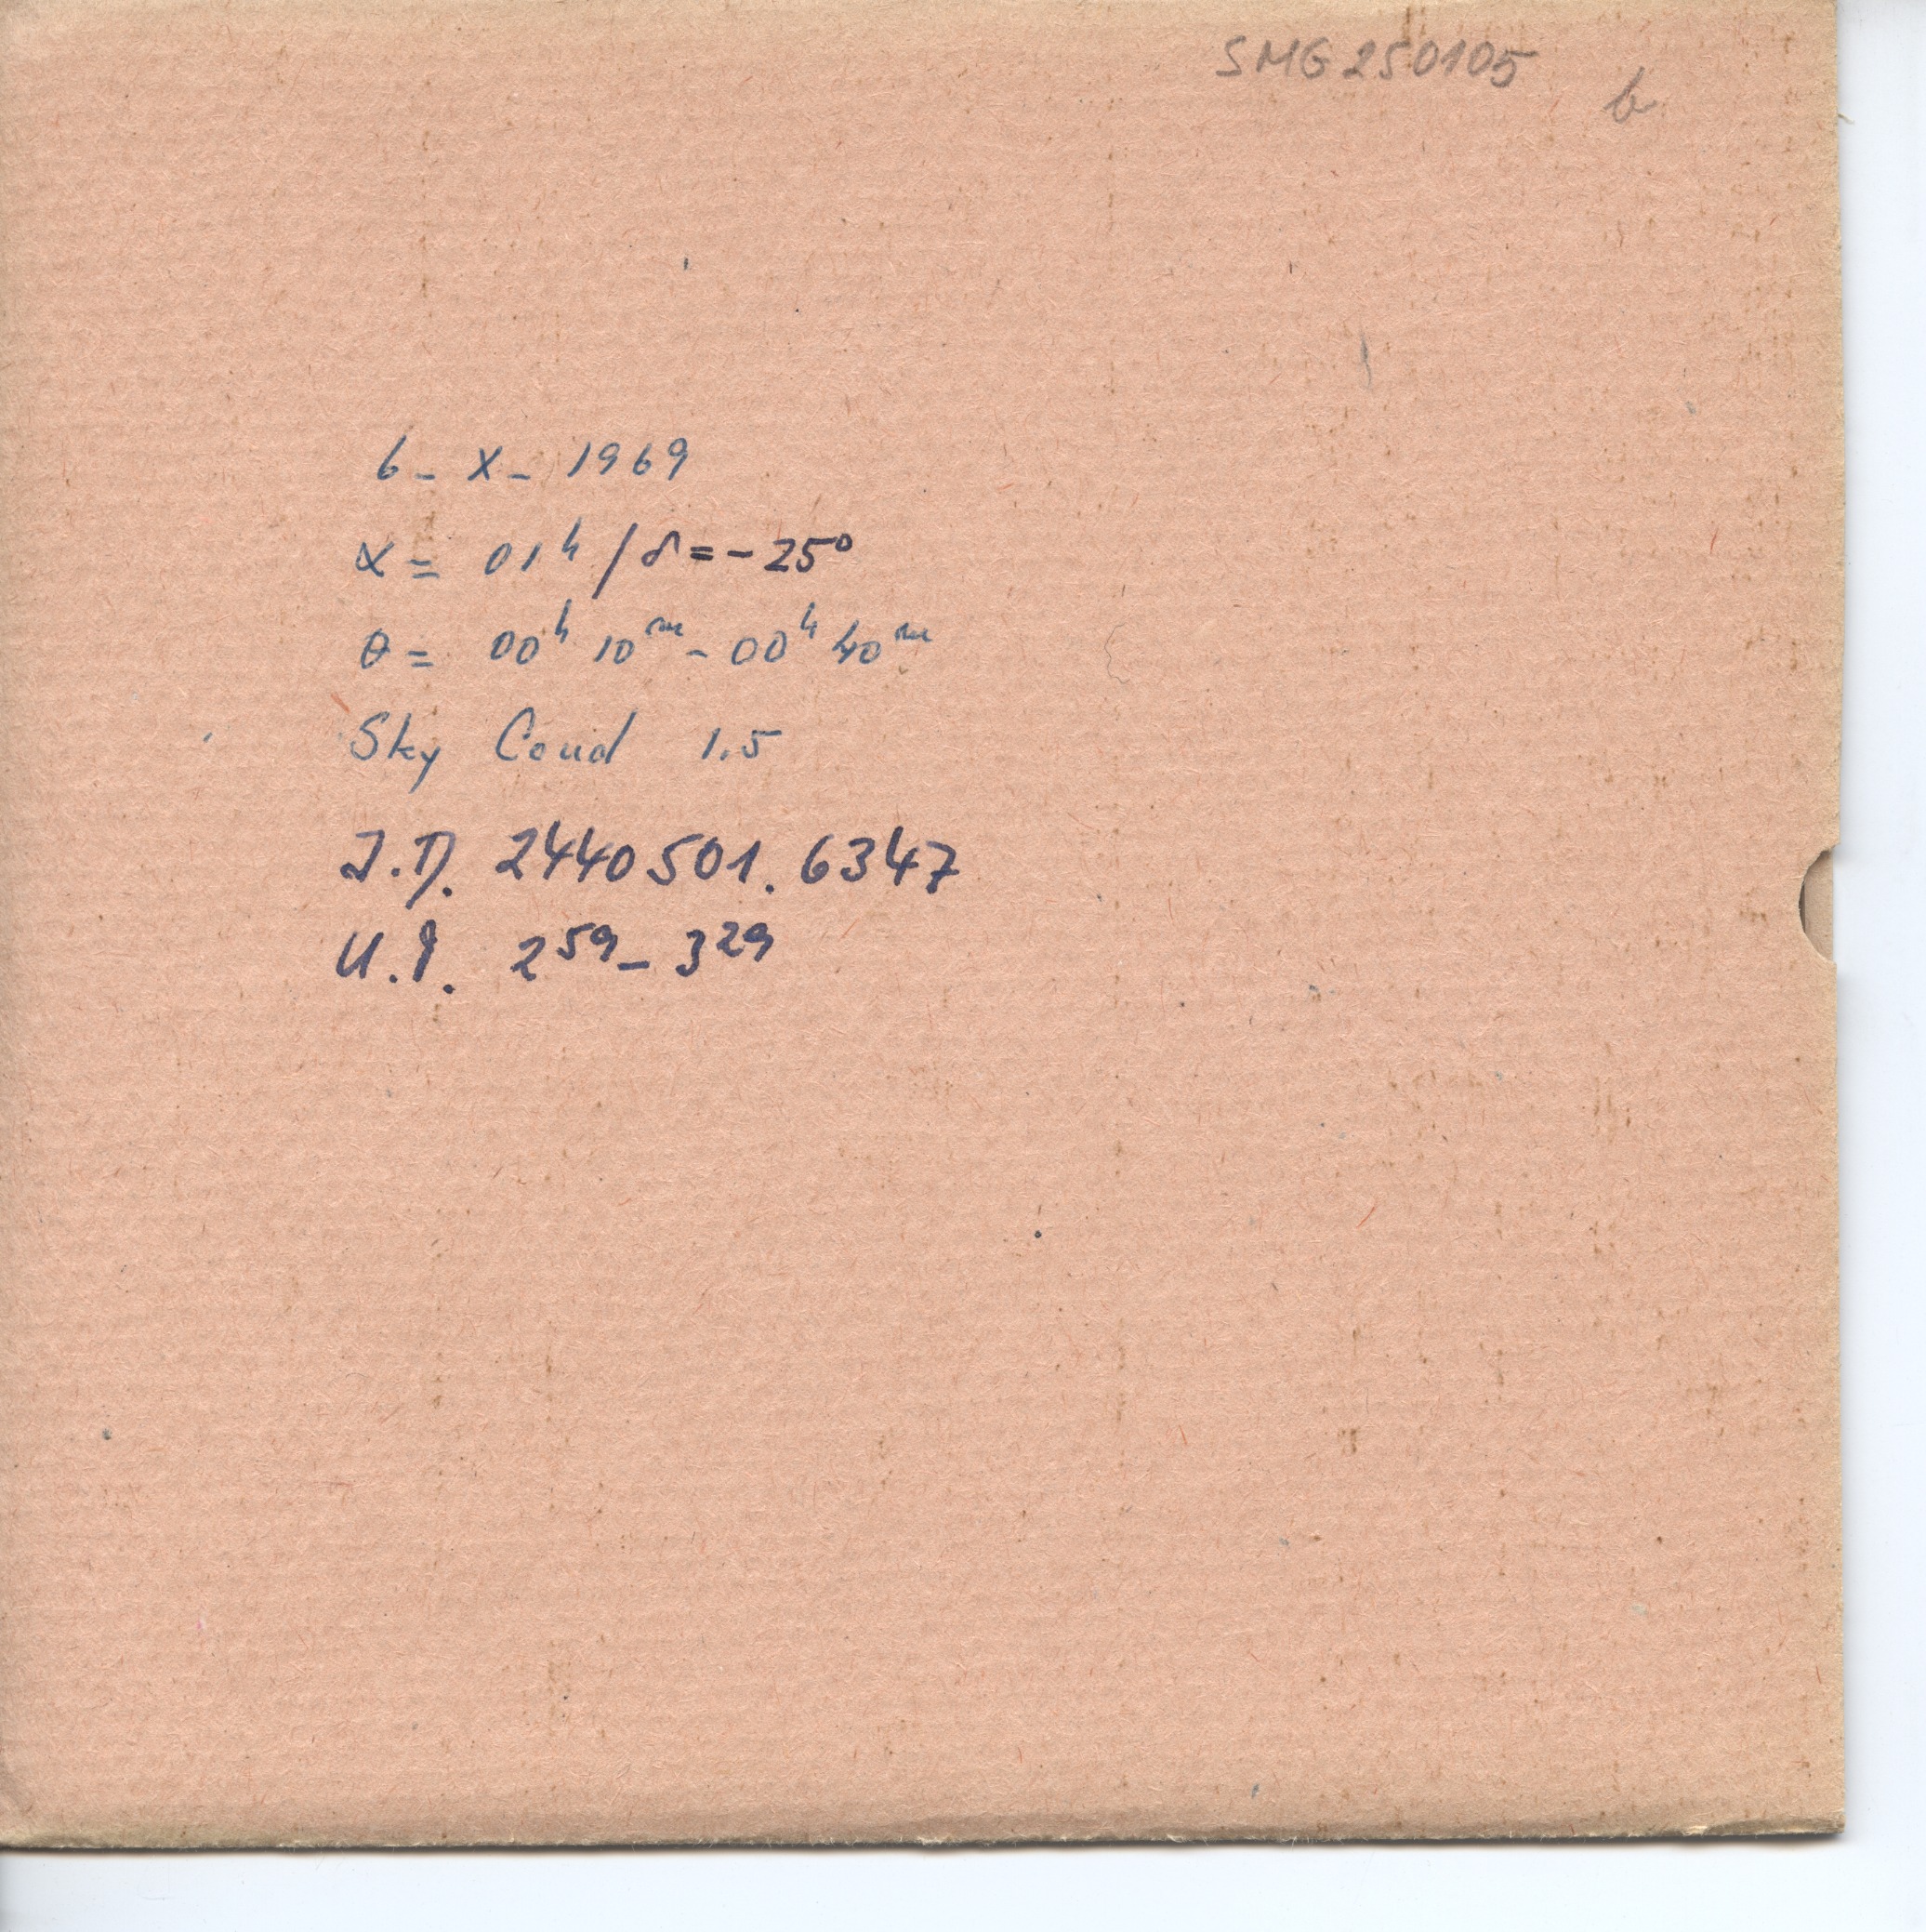 SMG 250105
b
6 - X - 1969
α = 01ʰ / δ = - 25°
θ = 00ʰ 10ᵐ - 00ʰ 40ᵐ
Sky Cond 1.5
J.D. 2440501.6347
U.T. 2⁵⁹ - 3²⁹